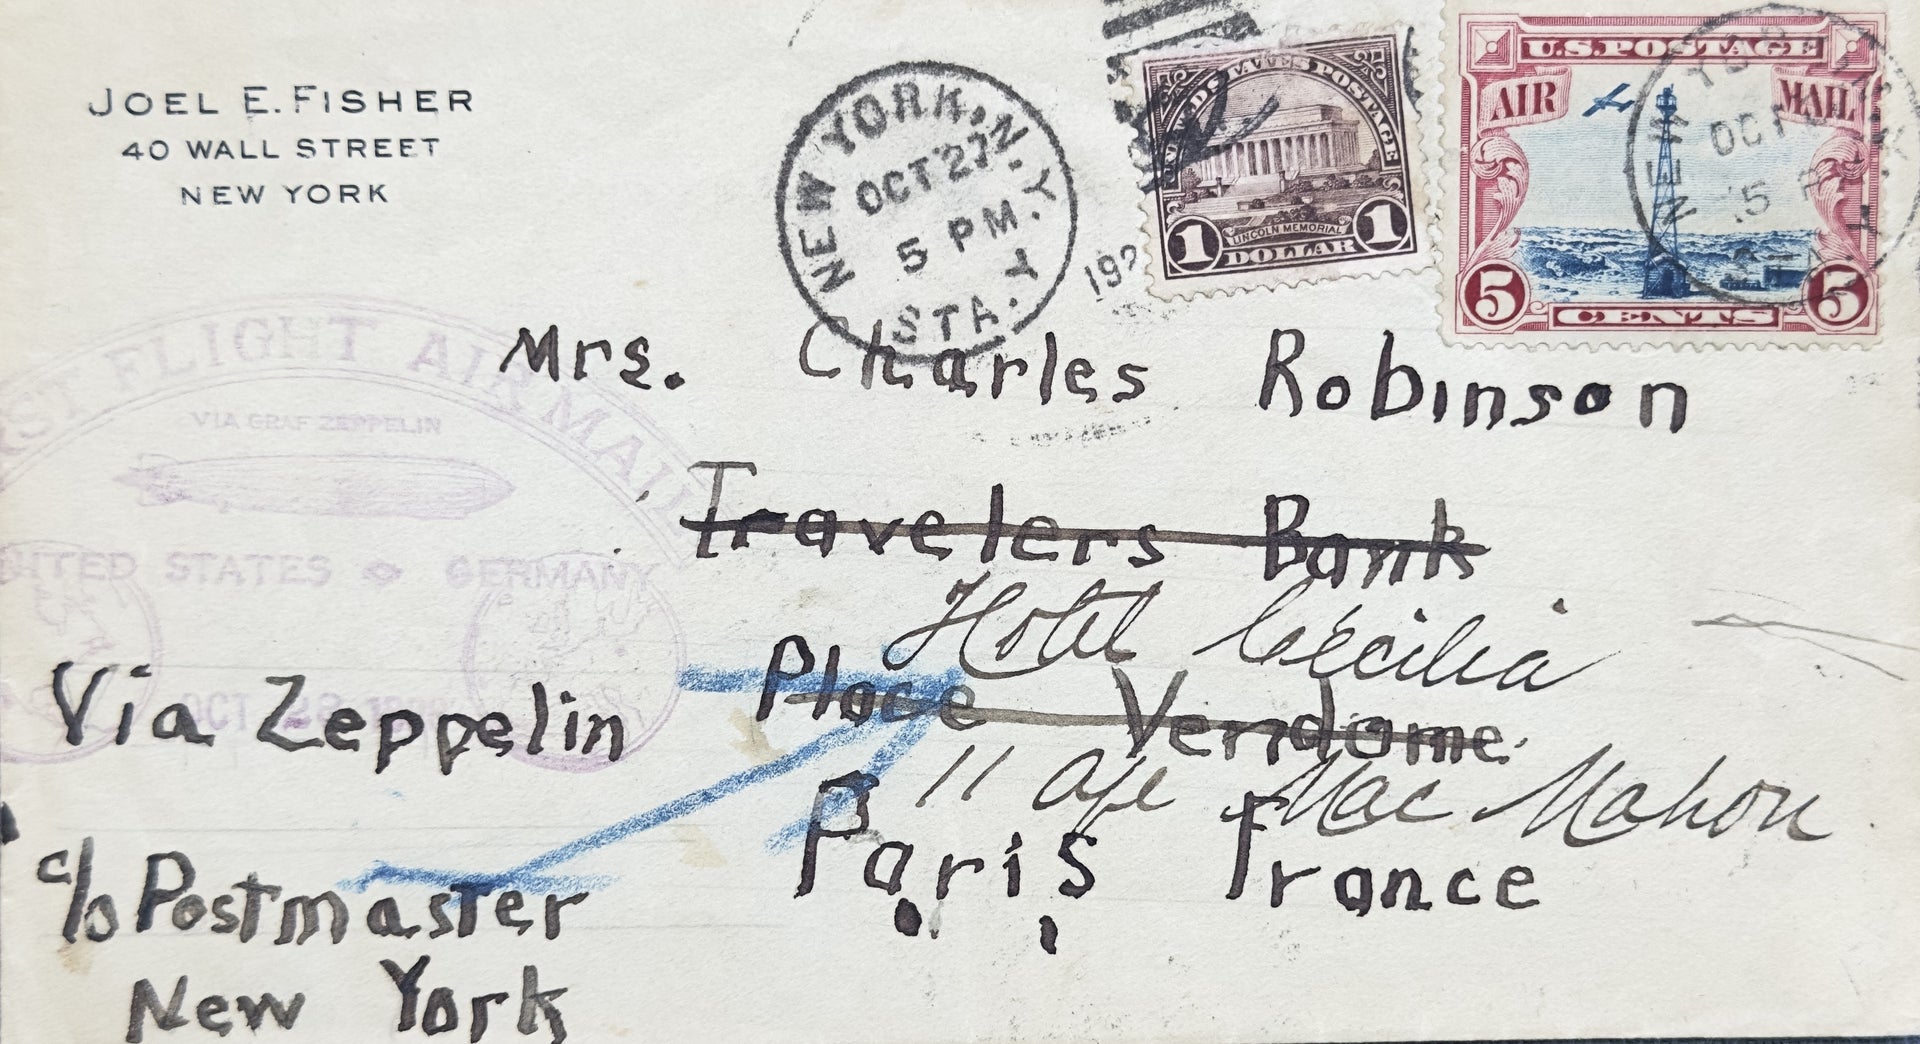 JOEL E. FISHER
40 WALL STREET
NEW YORK
NEW YORK, N.Y.
OCT 27
5 PM
STA. Y
192
UNITED STATES POSTAGE
LINCOLN MEMORIAL
1 DOLLAR 1
U.S. POSTAGE
AIR MAIL
5 CENTS 5
NEW YORK
OCT
5 P
STA
FIRST FLIGHT AIR MAIL
VIA GRAF ZEPPELIN
UNITED STATES GERMANY
OCT 28 1928
Mrs. Charles Robinson
Travelers Bank
Hotel Cécilia
Place Vendome
11 Ave Mac Mahon
Paris France
Via Zeppelin
c/o Postmaster
New York